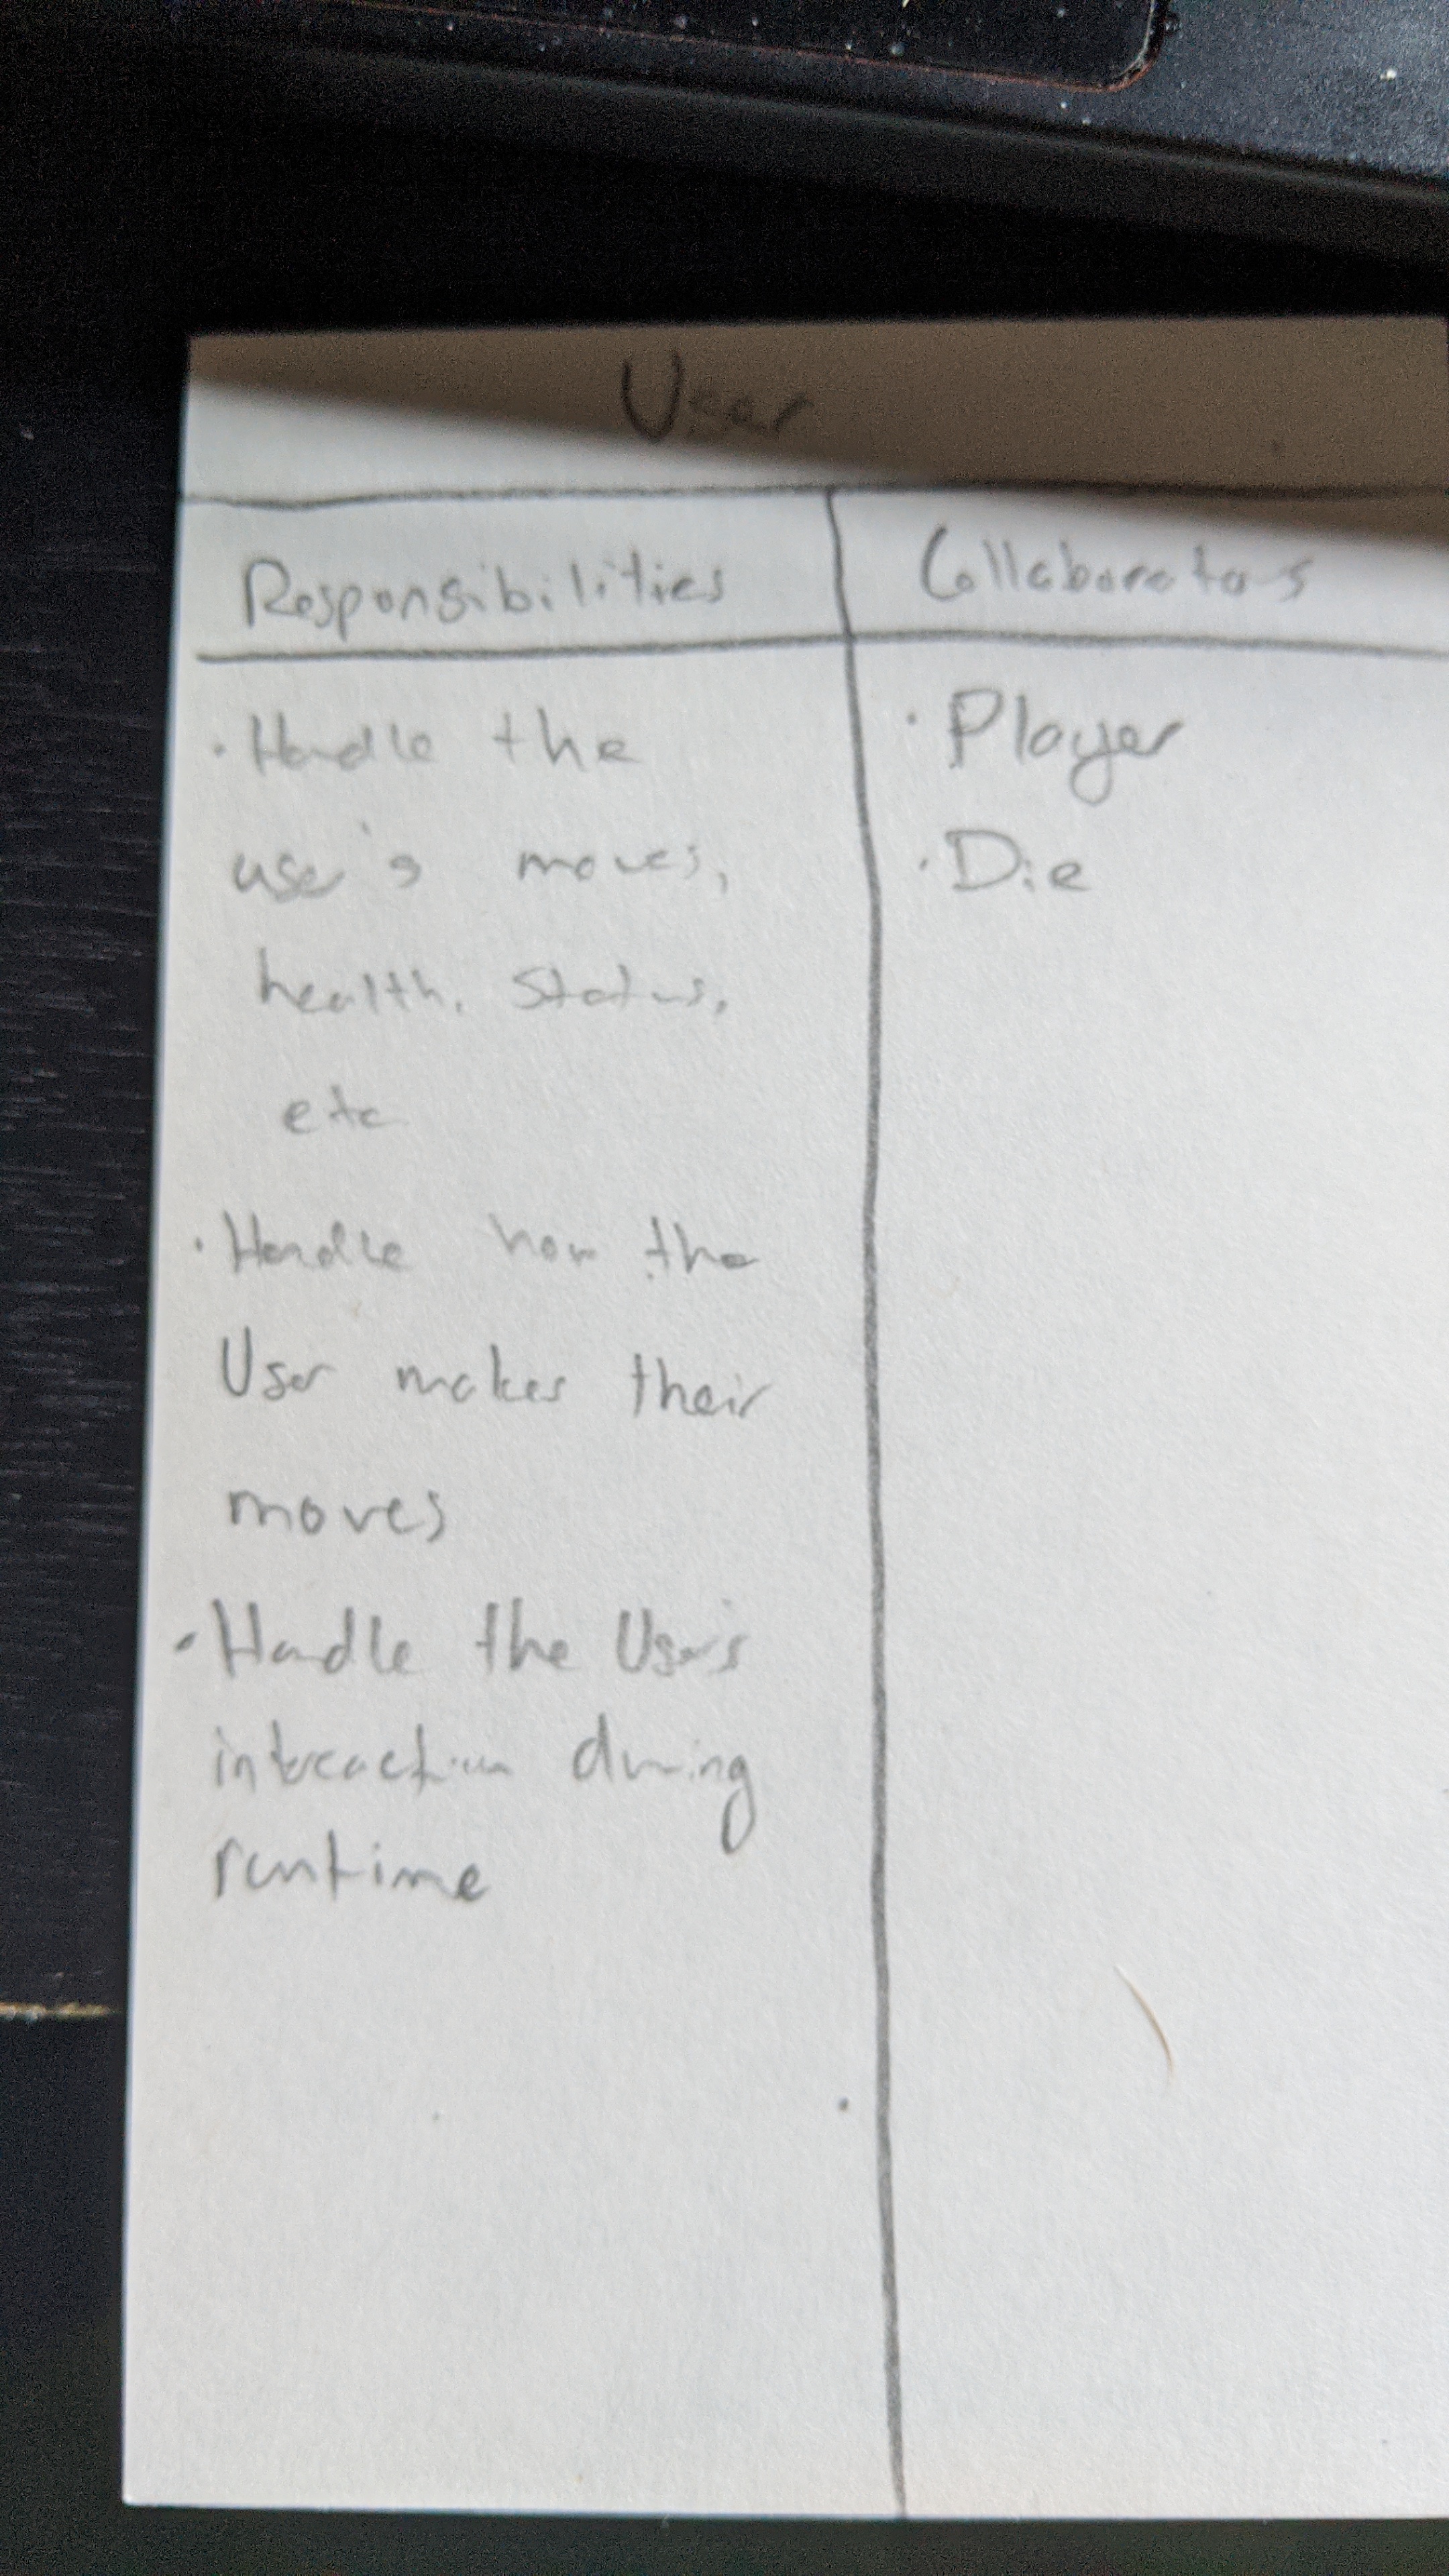 User
Responsibilities
Collaborators
· Handle the
user's moves,
health, status,
etc
· Handle how the
User makes their
moves
· Handle the User's
interaction during
runtime
· Player
· Die